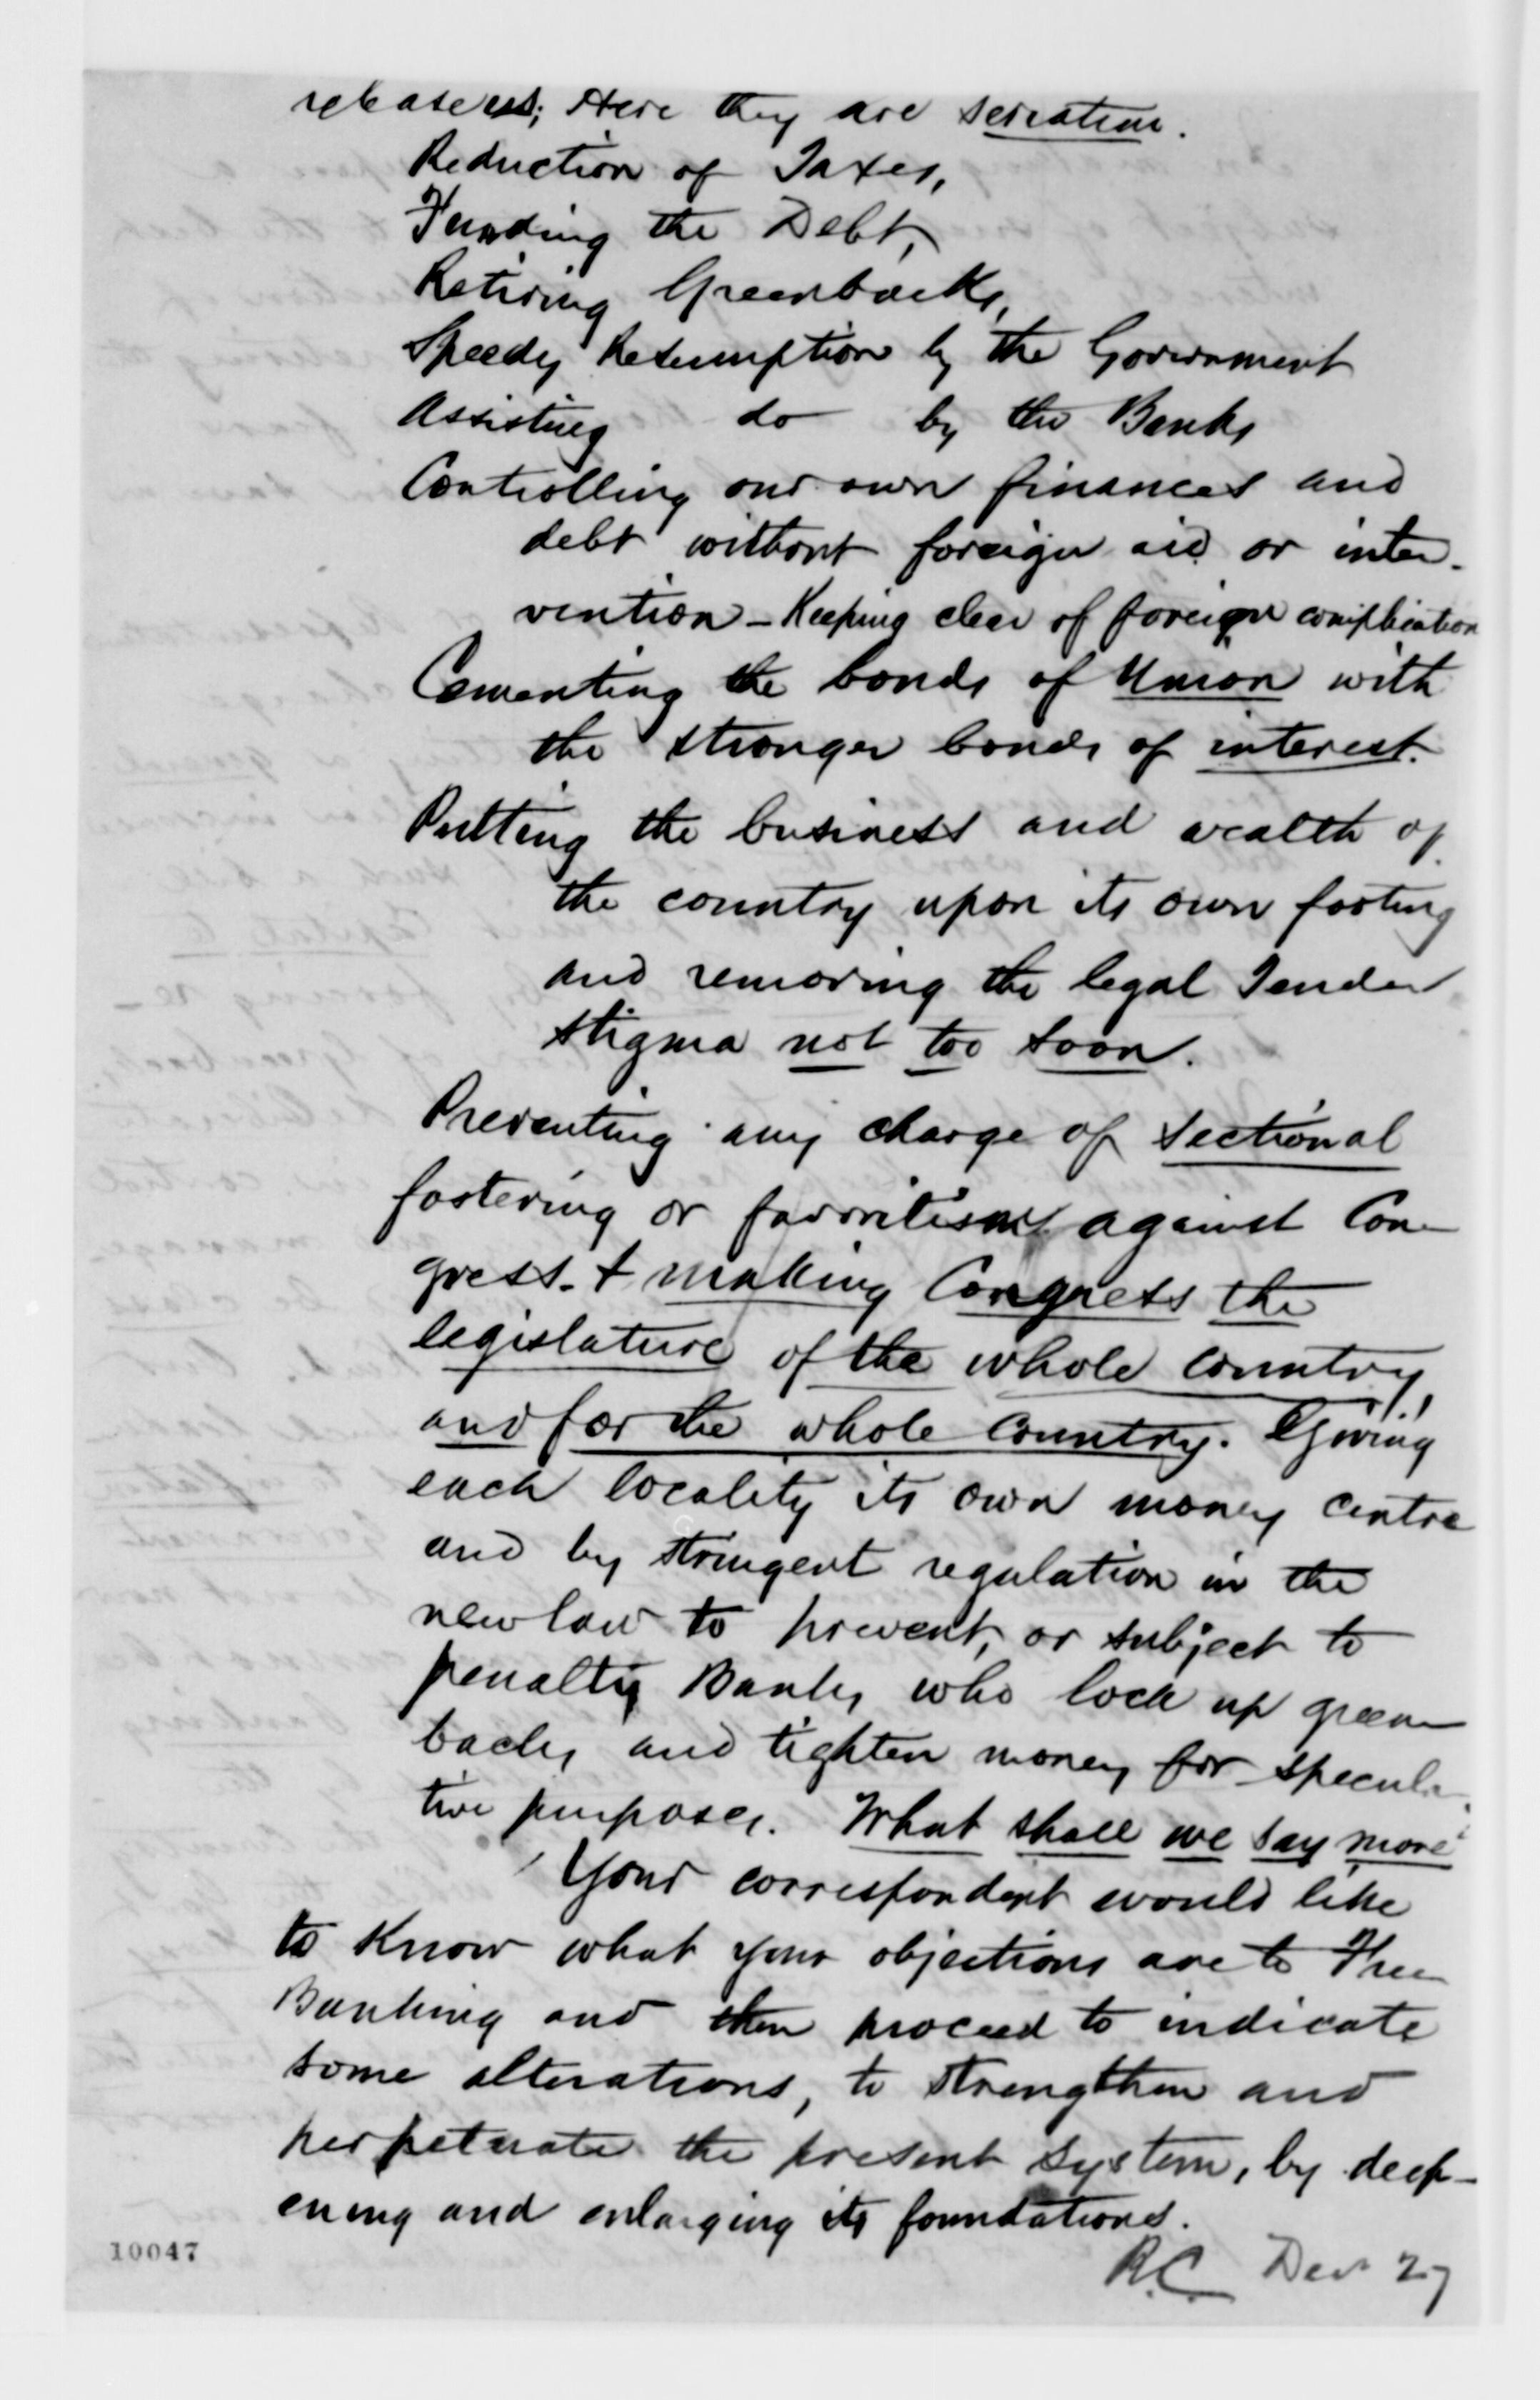 Here they are seriatim.
Reduction of Taxes,
Funding the Debt,
Retiring Greenbacks,
Speedy Resumption by the Government
Assisting do by the Banks
Controlling our own finances and
debt without foreign aid or inter-
vention - Keeping clear of foreign complication
Cementing the bonds of Union with
the stronger bonds of interest.
Putting the business and wealth of
the country upon its own footing
and removing the legal Tender
stigma not too soon.
Preventing any charge of sectional
fostering or favoritism against Con-
gress. & making Congress the
legislature of the whole country,
and for the whole country. Giving
each locality its own money centre
and by stringent regulation in the
new law to prevent, or subject to
penalty Banks who lock up green-
backs and tighten money for specula-
tive purposes. What shall we say more
Your correspondent would like
to know what your objections are to Free
Banking and then proceed to indicate
some alterations, to strengthen and
perpetuate the present system, by deep-
ening and enlarging its foundations.
R.C. Dec 27
10047